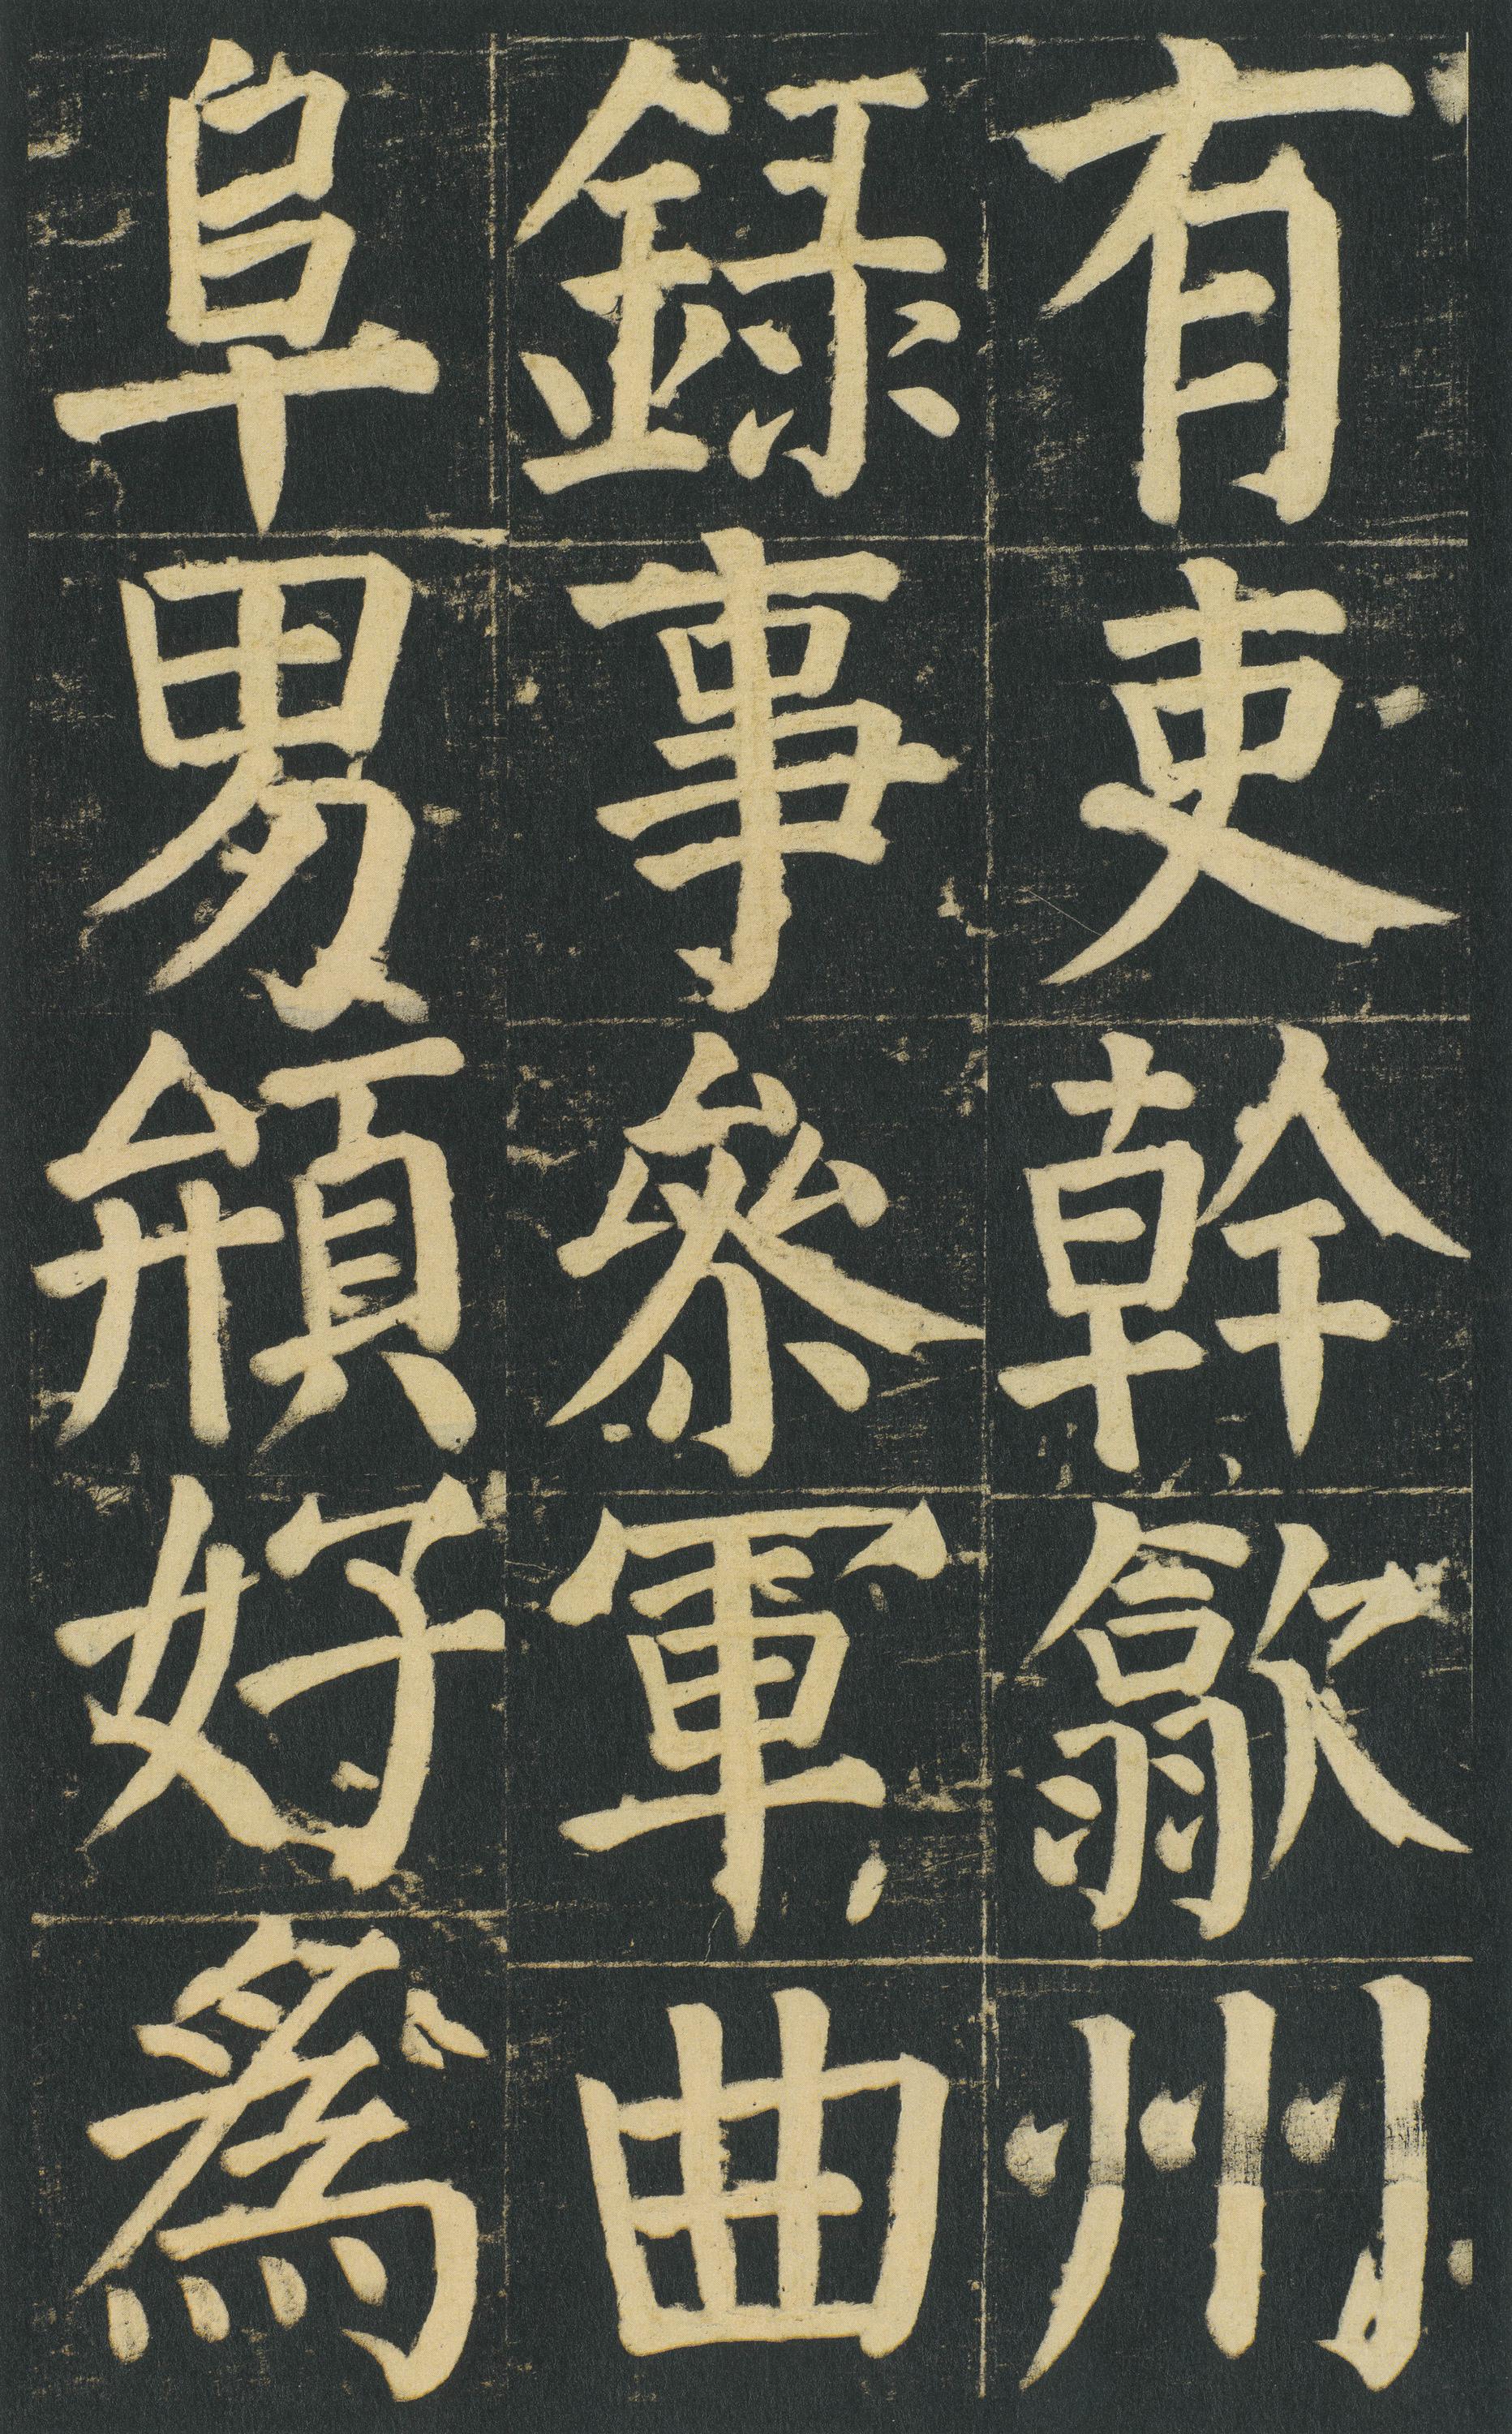 有吏幹歙州
録事參軍曲
阜男好爲